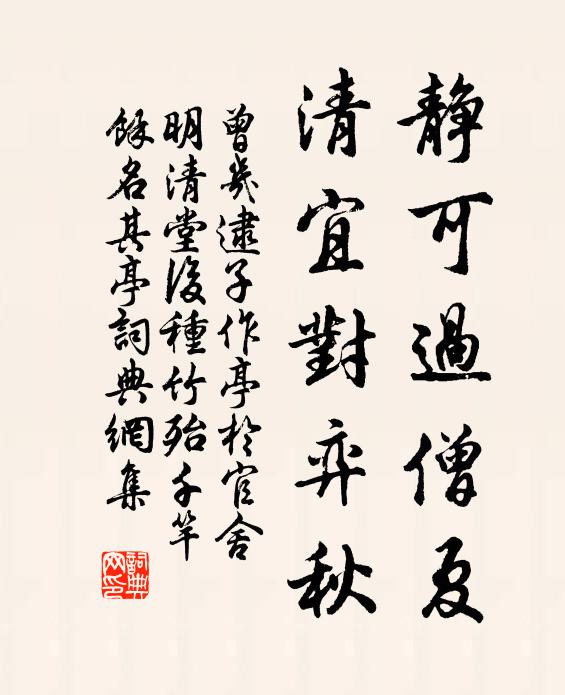 静可過僧夏
清宜對弈秋
曾幾逮子作亭於官舍
明清堂後種竹殆千竿
餘名其亭詞典網集
詞典网印